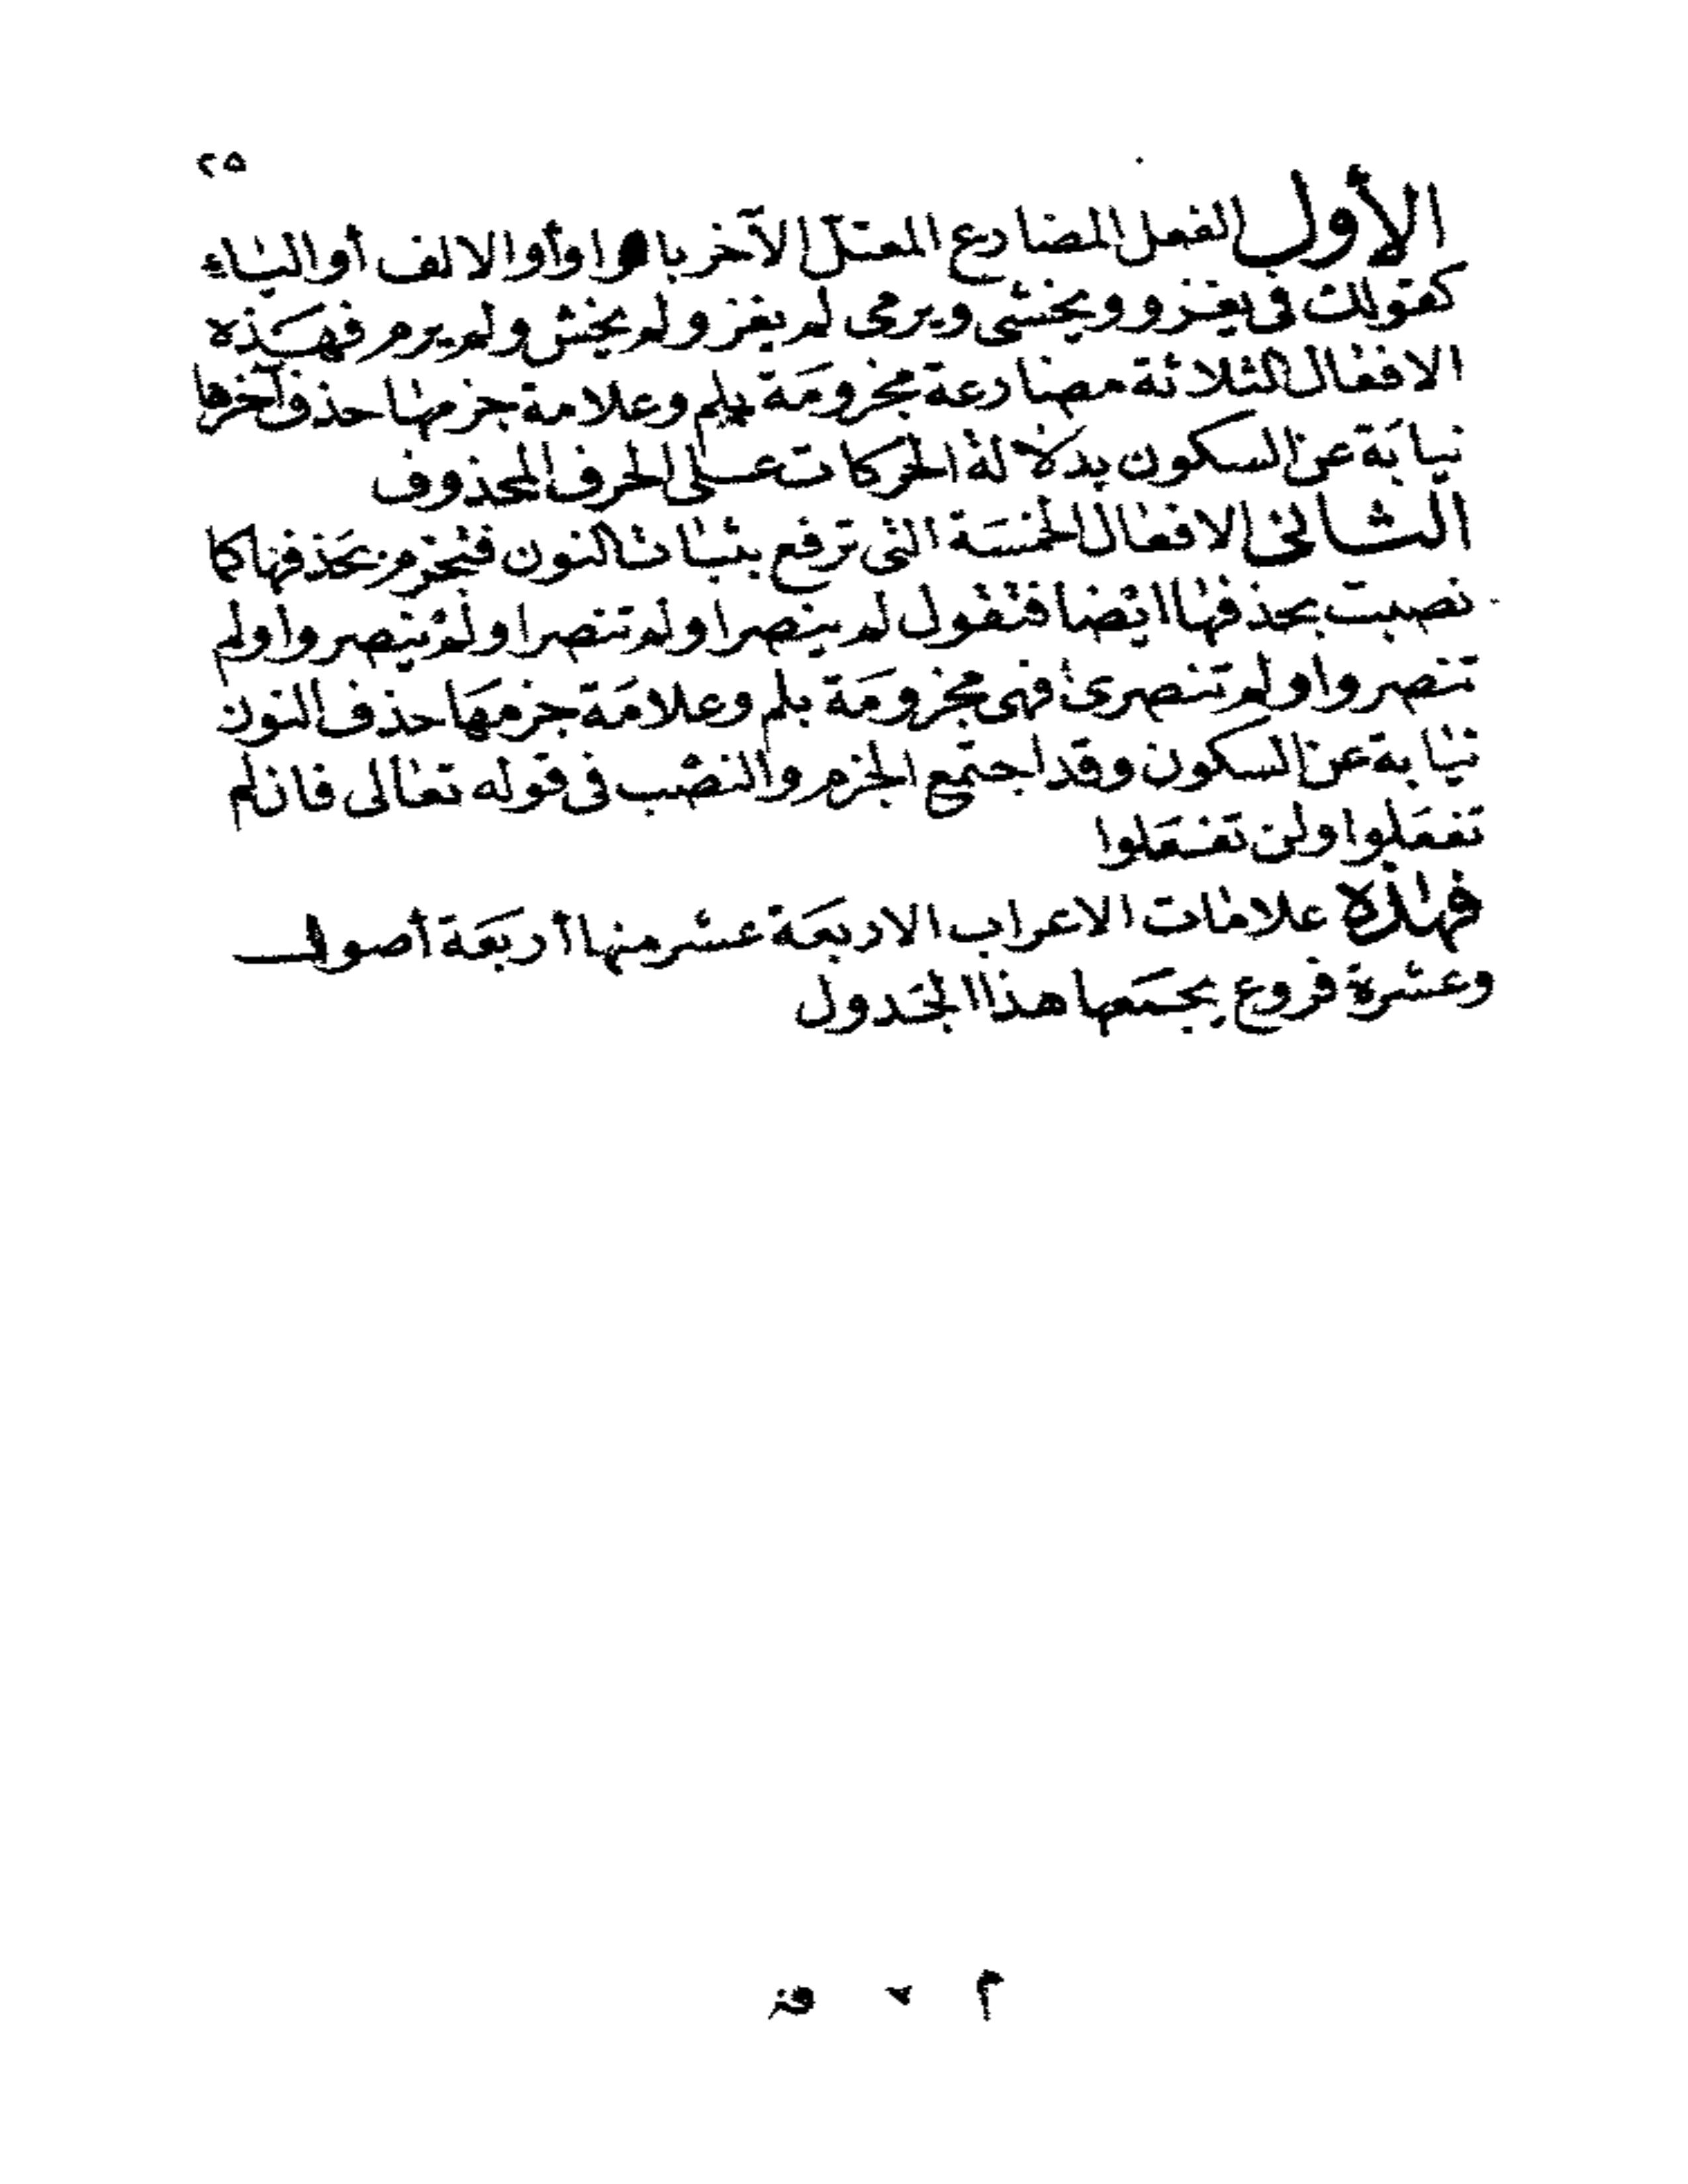 ٢٥
الأول الفعل المضارع المعتل الآخر بالواو أو الالف أو الياء
كقولك فى يغزو ويخشى ويرمى لم يغز ولم يخش ولم يرم فهذه
الافعال الثلاثة مضارعة مجزومة بلم وعلامة جزمها حذف آخرها
نيابة عن السكون بدلالة الحركات على الحرف المحذوف
الثانى الافعال الخمسة التى ترفع بثبات النون فتجزم بحذفها كما
نصبت بحذفها ايضا فتقول لم ينصرا ولم تنصرا ولم ينصروا ولم
تنصروا ولم تنصرى فهى مجزومة بلم وعلامة جزمها حذف النون
نيابة عن السكون وقد اجتمع الجزم والنصب فى قوله تعالى فان لم
تفعلوا ولن تفعلوا
فهذه علامات الاعراب الاربعة عشر منها أربعة أصول
وعشرة فروع يجمعها هذا الجدول